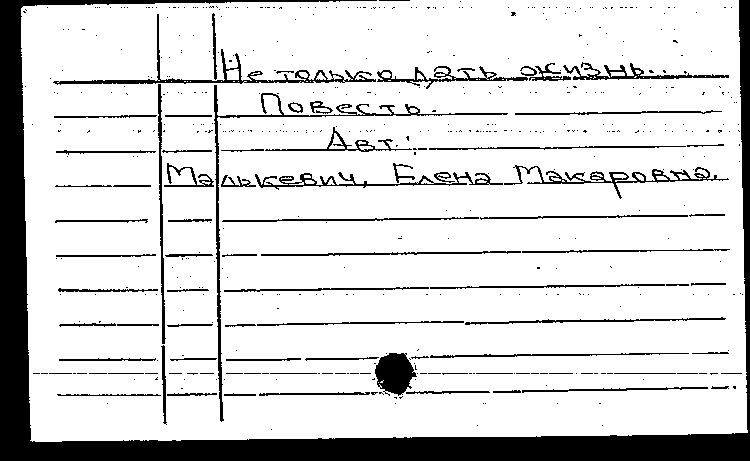 Не только дать жизнь...
Повесть.
Авт.:
Малькевич, Елена Макаровна.